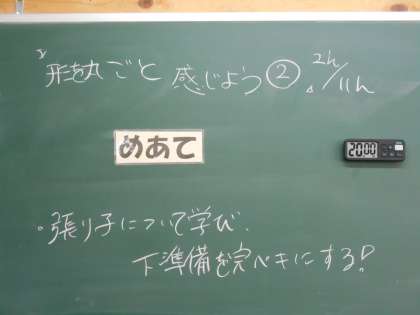 形を丸ごと感じよう② 2h/11h
めあて
20:00
・張り子について学び、
下準備を完ペキにする!